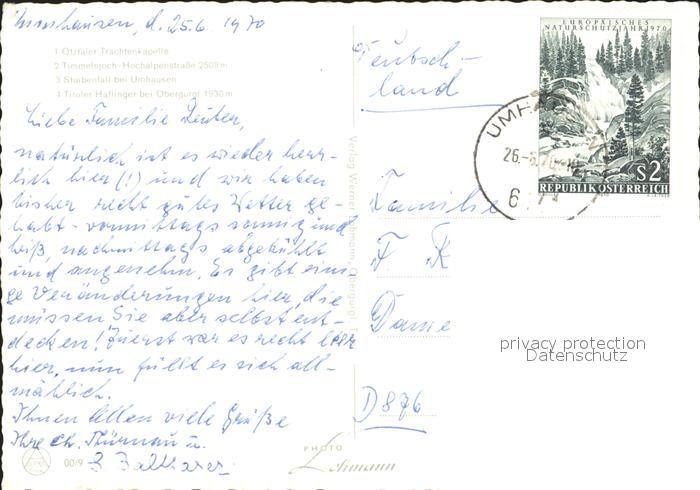 Umhausen, d. 25.6. 1970
1 Ötztaler Trachtenkapelle
2 Timmelsjoch-Hochalpenstraße 2509 m
3 Stuibenfall bei Umhausen
4 Tiroler Haflinger bei Obergurgl 1930 m
Liebe Familie
natürlich ist es wieder herr-
lich hier (!) und wir haben
bisher recht gutes Wetter ge-
habt - vormittags sonnig und
heiß, nachmittags abgekühlt
und angenehm. Es gibt eini-
ge Veränderungen hier, die
müssen Sie aber selbst ent-
decken! Zuerst war es recht leer
hier, nun füllt es sich all-
mählich.
Ihnen Allen viele Grüße
Ihre Ch. Thürnau u.
00/9
Verlag Werner Lohmann, Obergurgl
PHOTO
Lohmann
Deutsch-
land
Familie
F K
Dame
D 876
EUROPÄISCHES
NATURSCHUTZJAHR 1970
S 2
REPUBLIK ÖSTERREICH
UMHAUSEN
26.-6.70
privacy protection
Datenschutz